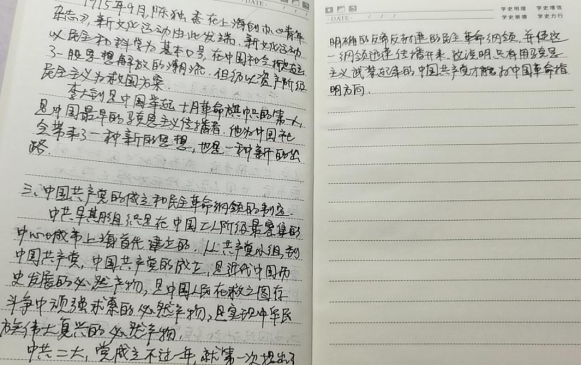 1915年9月,陈独秀在上海创办《青年
杂志》,新文化运动由此发端。新文化运动
以民主和科学为基本口号,在中国社会掀起
了一股思想解放的潮流,但仍以资产阶级
民主主义为救国方案。
李大钊是中国举起十月革命旗帜的第一人,
是中国最早的马克思主义传播者。他为中国社
会带来了一种新的思想,也是一种新的出
路。
三、中国共产党的成立和民主革命纲领的制定。
中共早期组织是在中国工人阶级最密集的
中心城市上海首先建立的。从共产党小组到
中国共产党,中国共产党的成立,是近代中国历
史发展的必然产物,是中国人民在救亡图存
斗争中顽强求索的必然产物,是实现中华民
族伟大复兴的必然产物。
中共二大,党成立不过一年,就第一次提出了
DATE
学史明理 学史增信
学史崇德 学史力行
明确的反帝反封建的民主革命纲领,并使这
一纲领迅速传播开来,这说明只有用马克思
主义武装起来的中国共产党才能为中国革命指
明方向。